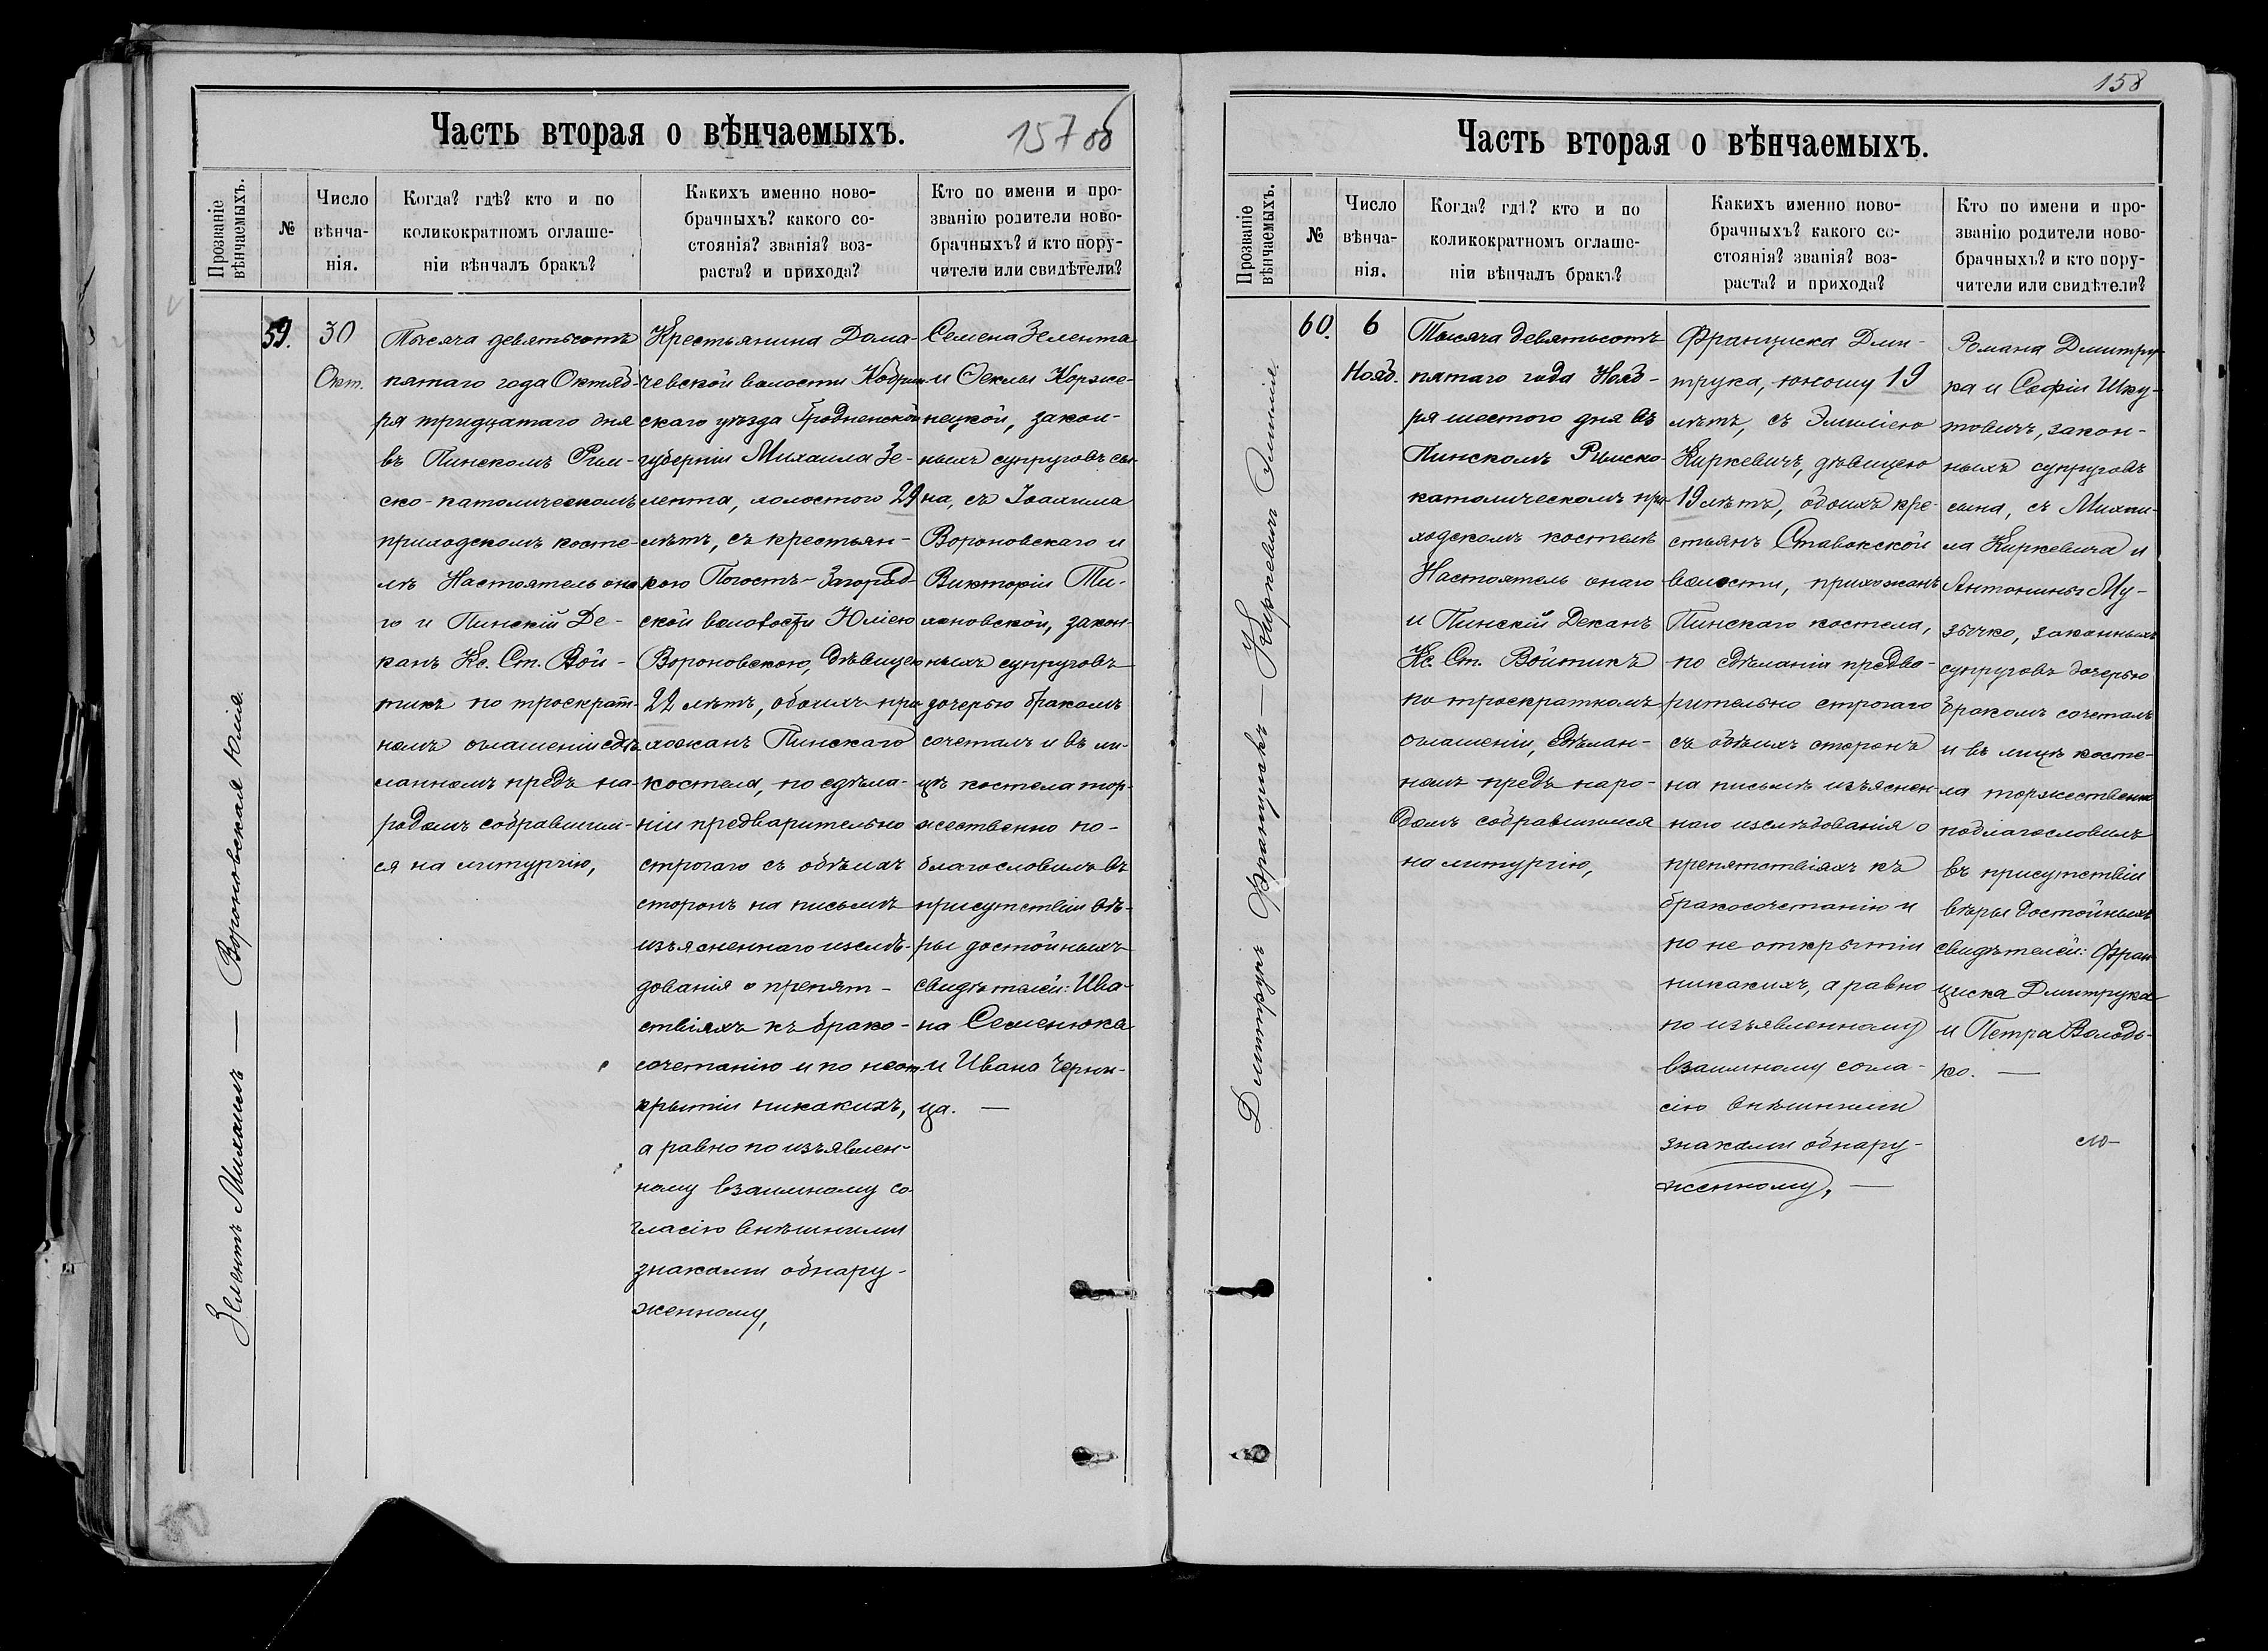 Часть вторая о вѣнчаемыхъ.
157 об
Прозваніе вѣнчаемыхъ.
№
Число вѣнча-
нія.
Когда? гдѣ? кто и по
коликократномъ оглаше-
ніи вѣнчалъ бракъ?
Какихъ именно ново-
брачныхъ? какого со-
стоянія? званія? воз-
раста? и прихода?
Кто по имени и про-
званію родители ново-
брачныхъ? и кто пору-
чители или свидѣтели?
Зелентъ Михаилъ — Вороновская Юлія.
59.
30
Окт.
Тысяча девятьсотъ
пятаго года Октяб-
ря тридцатаго дня
въ Пинскомъ Рим-
ско-католическомъ
приходскомъ косте-
лѣ Настоятель она-
го и Пинскій Де-
канъ Кс. Ст. Вой-
тикъ по троекрат-
номъ оглашеніи сдѣ-
ланномъ предъ на-
родомъ собравшим-
ся на литургію,
Крестьянина Дома-
чевской волости Кобрин-
скаго уѣзда Гродненской
губерніи Михаила Зе-
лента, холостого 29
лѣтъ, съ крестьян-
кою Погостъ-Загород-
ской волости Юліею
Вороновскою, дѣвицею
22 лѣтъ, обоихъ при-
хожанъ Пинскаго
костела, по сдѣла-
ніи предварительно
строгаго съ обѣихъ
сторонъ на письмѣ
изъясненнаго изслѣ-
дованія о препят-
ствіяхъ къ брако-
сочетанію и по неот-
крытіи никакихъ,
а равно по изъявлен-
ному взаимному со-
гласію внѣшними
знаками обнару-
женному,
Семена Зелента
и Феклы Корже-
нецкой, закон-
ныхъ супруговъ сы-
на, съ Іоахима
Вороновскаго и
Викторіи Ти-
хановской, закон-
ныхъ супруговъ
дочерью бракомъ
сочеталъ и въ ли-
цѣ костела тор-
жественно по-
благословилъ въ
присутствіи вѣ-
ры достойныхъ
свидѣтелей: Ива-
на Семенюка
и Ивана Черни-
ца. —
158
Часть вторая о вѣнчаемыхъ.
Прозваніе вѣнчаемыхъ.
№
Число вѣнча-
нія.
Когда? гдѣ? кто и по
коликократномъ оглаше-
ніи вѣнчалъ бракъ?
Какихъ именно ново-
брачныхъ? какого со-
стоянія? званія? воз-
раста? и прихода?
Кто по имени и про-
званію родители ново-
брачныхъ? и кто пору-
чители или свидѣтели?
Дмитрукъ Францишкъ — Киркевичъ Эмилія.
60.
6
Нояб.
Тысяча девятьсотъ
пятаго года Нояб-
ря шестого дня въ
Пинскомъ Римско-
католическомъ при-
ходскомъ костелѣ
Настоятель онаго
и Пинскій Деканъ
Кс. Ст. Войтикъ
по троекратномъ
оглашеніи, сдѣлан-
номъ предъ наро-
домъ собравшимся
на литургію,
Франциска Дми-
трука, юношу 19
лѣтъ, съ Эмиліею
Киркевичъ, дѣвицею
19 лѣтъ, обоихъ кре-
стьянъ Ставокской
волости, прихожанъ
Пинскаго костела,
по сдѣланіи предва-
рительно строгаго
съ обѣихъ сторонъ
на письмѣ изъяснен-
наго изслѣдованія о
препятствіяхъ къ
бракосочетанію и
по не открытіи
никакихъ, а равно
по изъявленному
взаимному согла-
сію внѣшними
знаками обнару-
женному, —
Романа Дмитру-
ка и Софіи Шку-
товичъ, закон-
ныхъ супруговъ
сына, съ Михаи-
ла Киркевича и
Антонины Му-
зычко, законныхъ
супруговъ дочерью
бракомъ сочеталъ
и въ лицѣ косте-
ла торжественно
поблагословилъ
въ присутствіи
вѣры достойныхъ
свидѣтелей: Фран-
циска Дмитрука
и Петра Володь-
ко. —